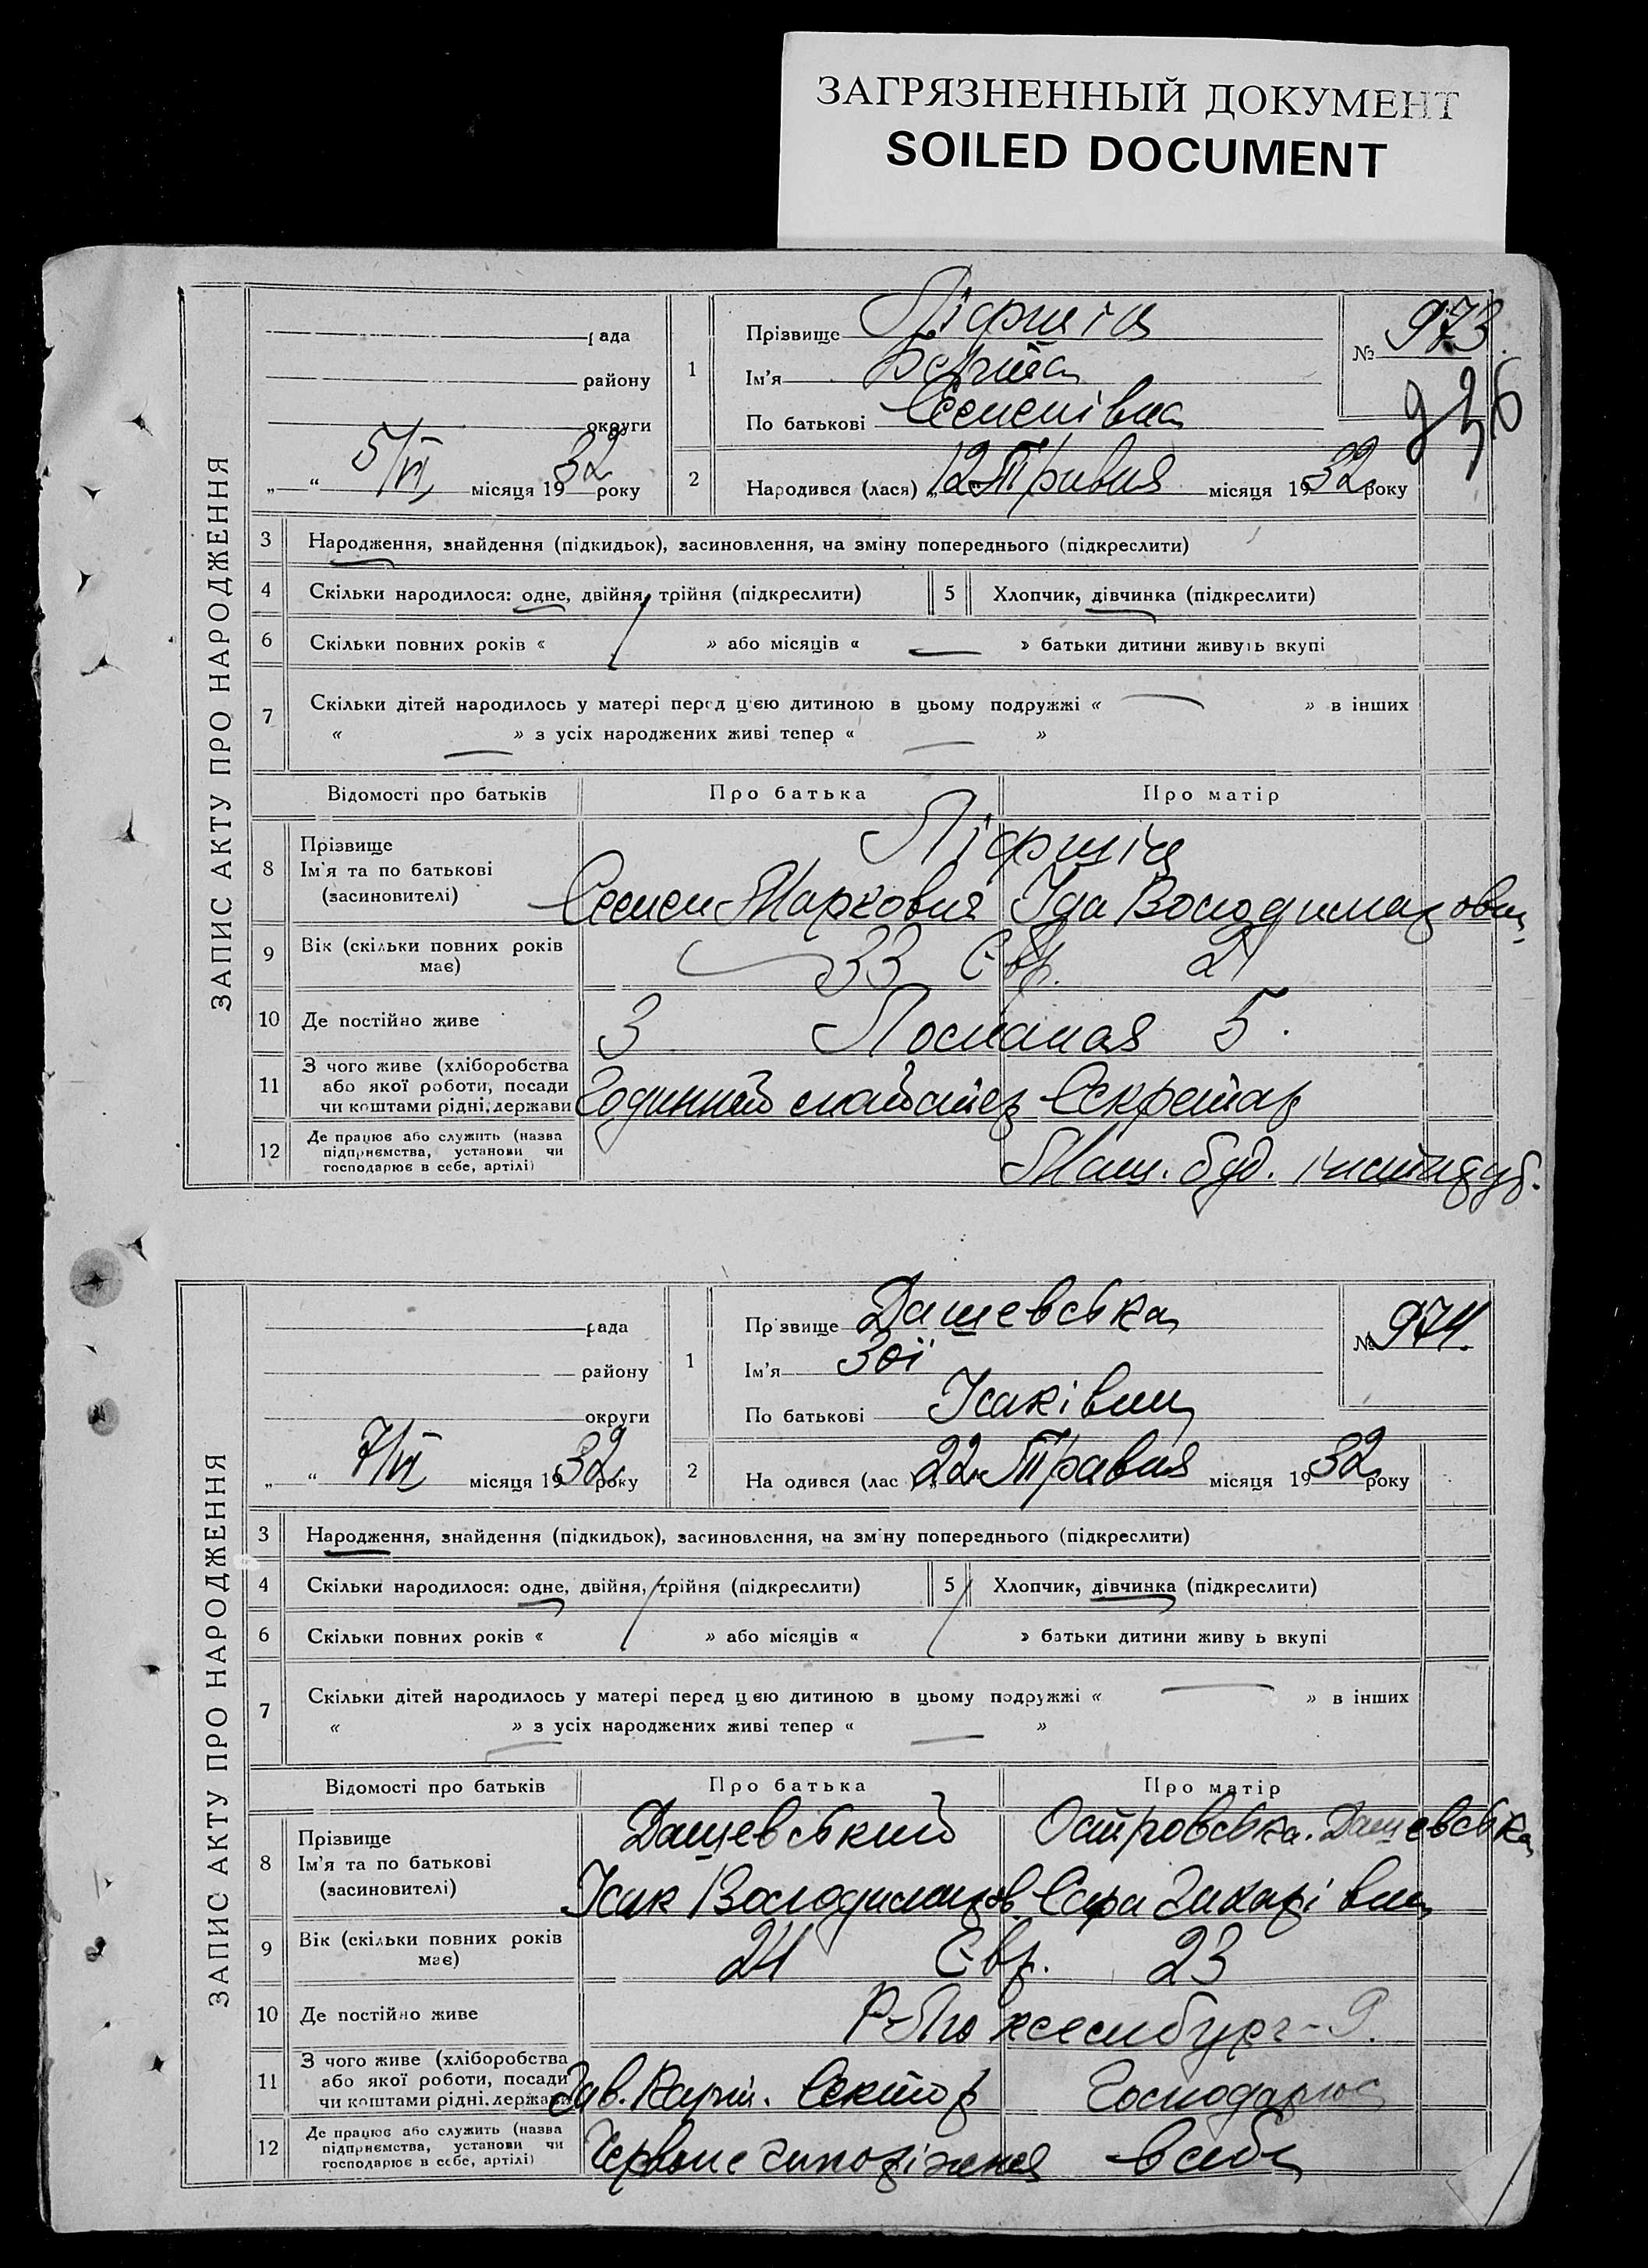 ЗАГРЯЗНЕННЫЙ ДОКУМЕНТ
SOILED DOCUMENT
ЗАПИС АКТУ ПРО НАРОДЖЕННЯ
рада
району
округи
„ “ 5/VI місяця 1932 року
1
Прізвище Ліфшіц
Ім'я Берта
По батькові Семенівна
№ 973.
2
Народився (лася) „12“ Травня місяця 1932 року
3 Народження, знайдення (підкидьок), засиновлення, на зміну попереднього (підкреслити)
4 Скільки народилося: одне, двійня, трійня (підкреслити)
5 Хлопчик, дівчинка (підкреслити)
6 Скільки повних років « » або місяців « — » батьки дитини живуть вкупі
7 Скільки дітей народилось у матері перед цією дитиною в цьому подружжі « — » в інших
« — » з усіх народжених живі тепер « — »
Відомості про батьків Про батька Про матір
8 Прізвище
Ім'я та по батькові
(засиновителі)
Ліфшіц
Семен Маркович Іда Володимировн.
9 Вік (скільки повних років має) 33 Євр.
10 Де постійно живе 3 5.
11 З чого живе (хліборобства
або якої роботи, посади
чи коштами рідні, держави
Секретар
12 Де працює або служить (назва
підприємства, установи чи
господарює в себе, артілі)
Маш. буд.
ЗАПИС АКТУ ПРО НАРОДЖЕННЯ
рада
району
округи
„ “ 7/VI місяця 1932 року
1
Прізвище Дашевська
Ім'я Зоі
По батькові Ісаківна
№ 974.
2
Народився (лас „22“ Травня місяця 1932 року
3 Народження, знайдення (підкидьок), засиновлення, на зміну попереднього (підкреслити)
4 Скільки народилося: одне, двійня, трійня (підкреслити)
5 Хлопчик, дівчинка (підкреслити)
6 Скільки повних років « » або місяців « » батьки дитини живу ь вкупі
7 Скільки дітей народилось у матері перед цією дитиною в цьому подружжі « — » в інших
« — » з усіх народжених живі тепер « — »
Відомості про батьків Про батька Про матір
8 Прізвище
Ім'я та по батькові
(засиновителі)
Дашевський Островська. Дашевська
Ісак Володимиров Сара Захарівна
9 Вік (скільки повних років має) 24 Євр. 23
10 Де постійно живе Р-Люксембург-9.
11 З чого живе (хліборобства
або якої роботи, посади
чи коштами рідні, держави
Зав. Сектор Господарює
12 Де працює або служить (назва
підприємства, установи чи
господарює в себе, артілі)
Червоне в себе